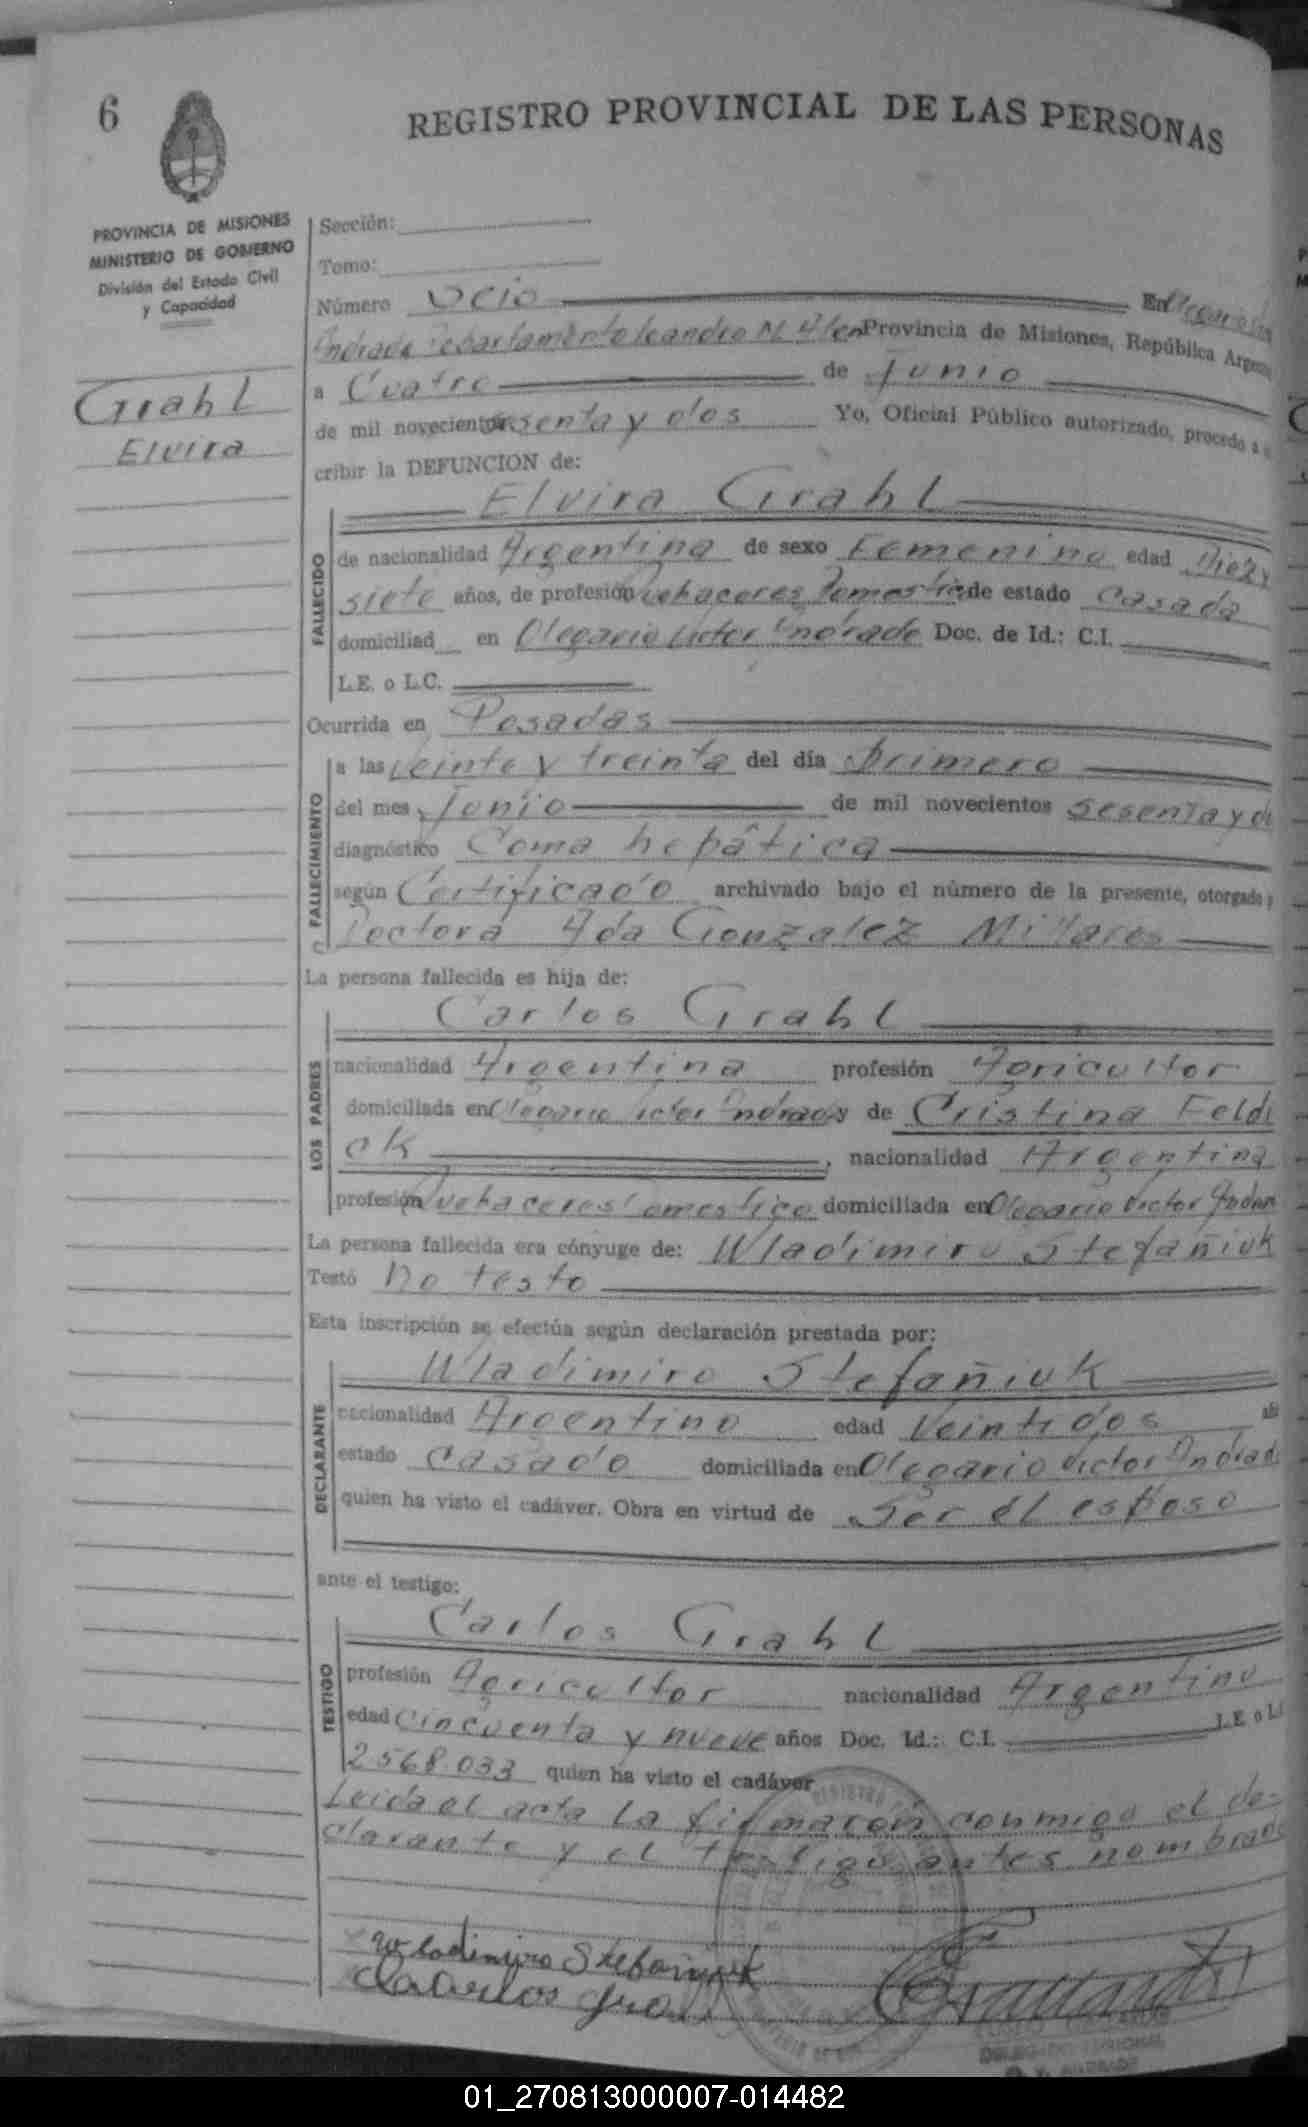 6
REGISTRO PROVINCIAL DE LAS PERSONAS
PROVINCIA DE MISIONES
MINISTERIO DE GOBIERNO
División del Estado Civil
y Capacidad
Grahl
Elvira
Sección:
Tomo:
Número Seis En
Andrade Departamento Leandro N. Alem Provincia de Misiones, República Argentina
a Cuatro de Junio
de mil novecientos sesenta y dos Yo, Oficial Público autorizado, procedo a
cribir la DEFUNCION de:
Elvira Grahl
FALLECIDO
de nacionalidad Argentina de sexo Femenino edad Diez y
siete años, de profesión Quehaceres Domestico de estado Casada
domiciliad en Olegario Victor Andrade Doc. de Id.: C.I.
L.E. o L.C.
Ocurrida en Posadas
FALLECIMIENTO
a las veinte y treinta del día primero
del mes Junio de mil novecientos sesenta y do
diagnóstico Coma hepática
según Certificado archivado bajo el número de la presente, otorgado p
Doctora Ada Gonzalez Millares
La persona fallecida es hija de:
Carlos Grahl
LOS PADRES
nacionalidad Argentina profesión Agricultor
domiciliada en Olegario Victor Andrade y de Cristina Feldi
ck, nacionalidad Argentina
profesión Quehaceres Domestico domiciliada en Olegario Victor Andra
La persona fallecida era cónyuge de: Wladimiro Stefañiuk
Testó No testo
Esta inscripción se efectúa según declaración prestada por:
Wladimiro Stefañiuk
DECLARANTE
nacionalidad Argentino edad Veintidos añ
estado Casado domiciliada en Olegario Victor Andrade
quien ha visto el cadáver. Obra en virtud de Ser el esposo
ante el testigo:
Carlos Grahl
TESTIGO
profesión Agricultor nacionalidad Argentino
edad Cincuenta y nueve años Doc. Id.: C.I. L.E o L.
2.568.033 quien ha visto el cadáver
Leida el acta la firmaron conmigo el de-
clarante y el testigo antes nombrado
Wladimiro Stefañiuk
Carlos Gral
01_270813000007-014482